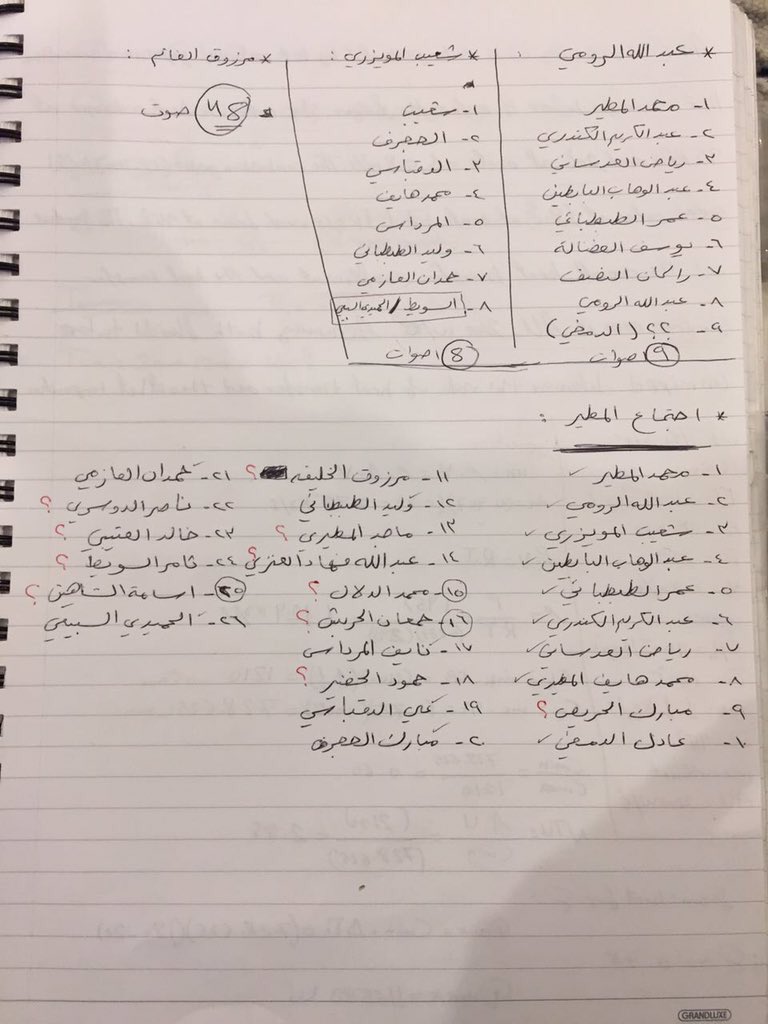 * عبدالله الرومي :
١- محمد المطير
٢- عبدالكريم الكندري
٣- رياض العدساني
٤- عبدالوهاب البابطين
٥- عمر الطبطبائي
٦- يوسف الفضالة
٧- راكان النصف
٨- عبدالله الرومي
٩- ؟؟ (الدمخي)
٩ اصوات
* شعيب المويزري :
١- شعيب
٢- الحجرف
٣- الدقباسي
٤- محمد هايف
٥- المرداس
٦- وليد الطبطبائي
٧- حمدان العازمي
٨- السويط / الحميدي السبيعي
8 اصوات
* مرزوق الغانم :
48 صوت
* اجتماع المطير :
١- محمد المطير ✓
٢- عبدالله الرومي ✓
٣- شعيب المويزري ✓
٤- عبدالوهاب البابطين ✓
٥- عمر الطبطبائي ✓
٦- عبدالكريم الكندري ✓
٧- رياض العدساني ✓
٨- محمد هايف المطيري ✓
٩- مبارك الحريص ؟
١٠- عادل الدمخي ✓
١١- مرزوق الخليفه ؟
١٢- وليد الطبطبائي
١٣- ماجد المطيري ؟
١٤- عبدالله فهاد العنزي ؟
١٥- محمد الدلال ؟
١٦- جمعان الحربش ؟
١٧- نايف المرداس
١٨- حمود الخضير ؟
١٩- علي الدقباسي
٢٠- مبارك الحجرف
٢١- حمدان العازمي
٢٢- ناصر الدوسري ؟
٢٣- خالد العتيبي ؟
٢٤- ثامر السويط ؟
٢٥- اسامة الشاهين ؟
٢٦- الحميدي السبيعي
GRANDLUXE